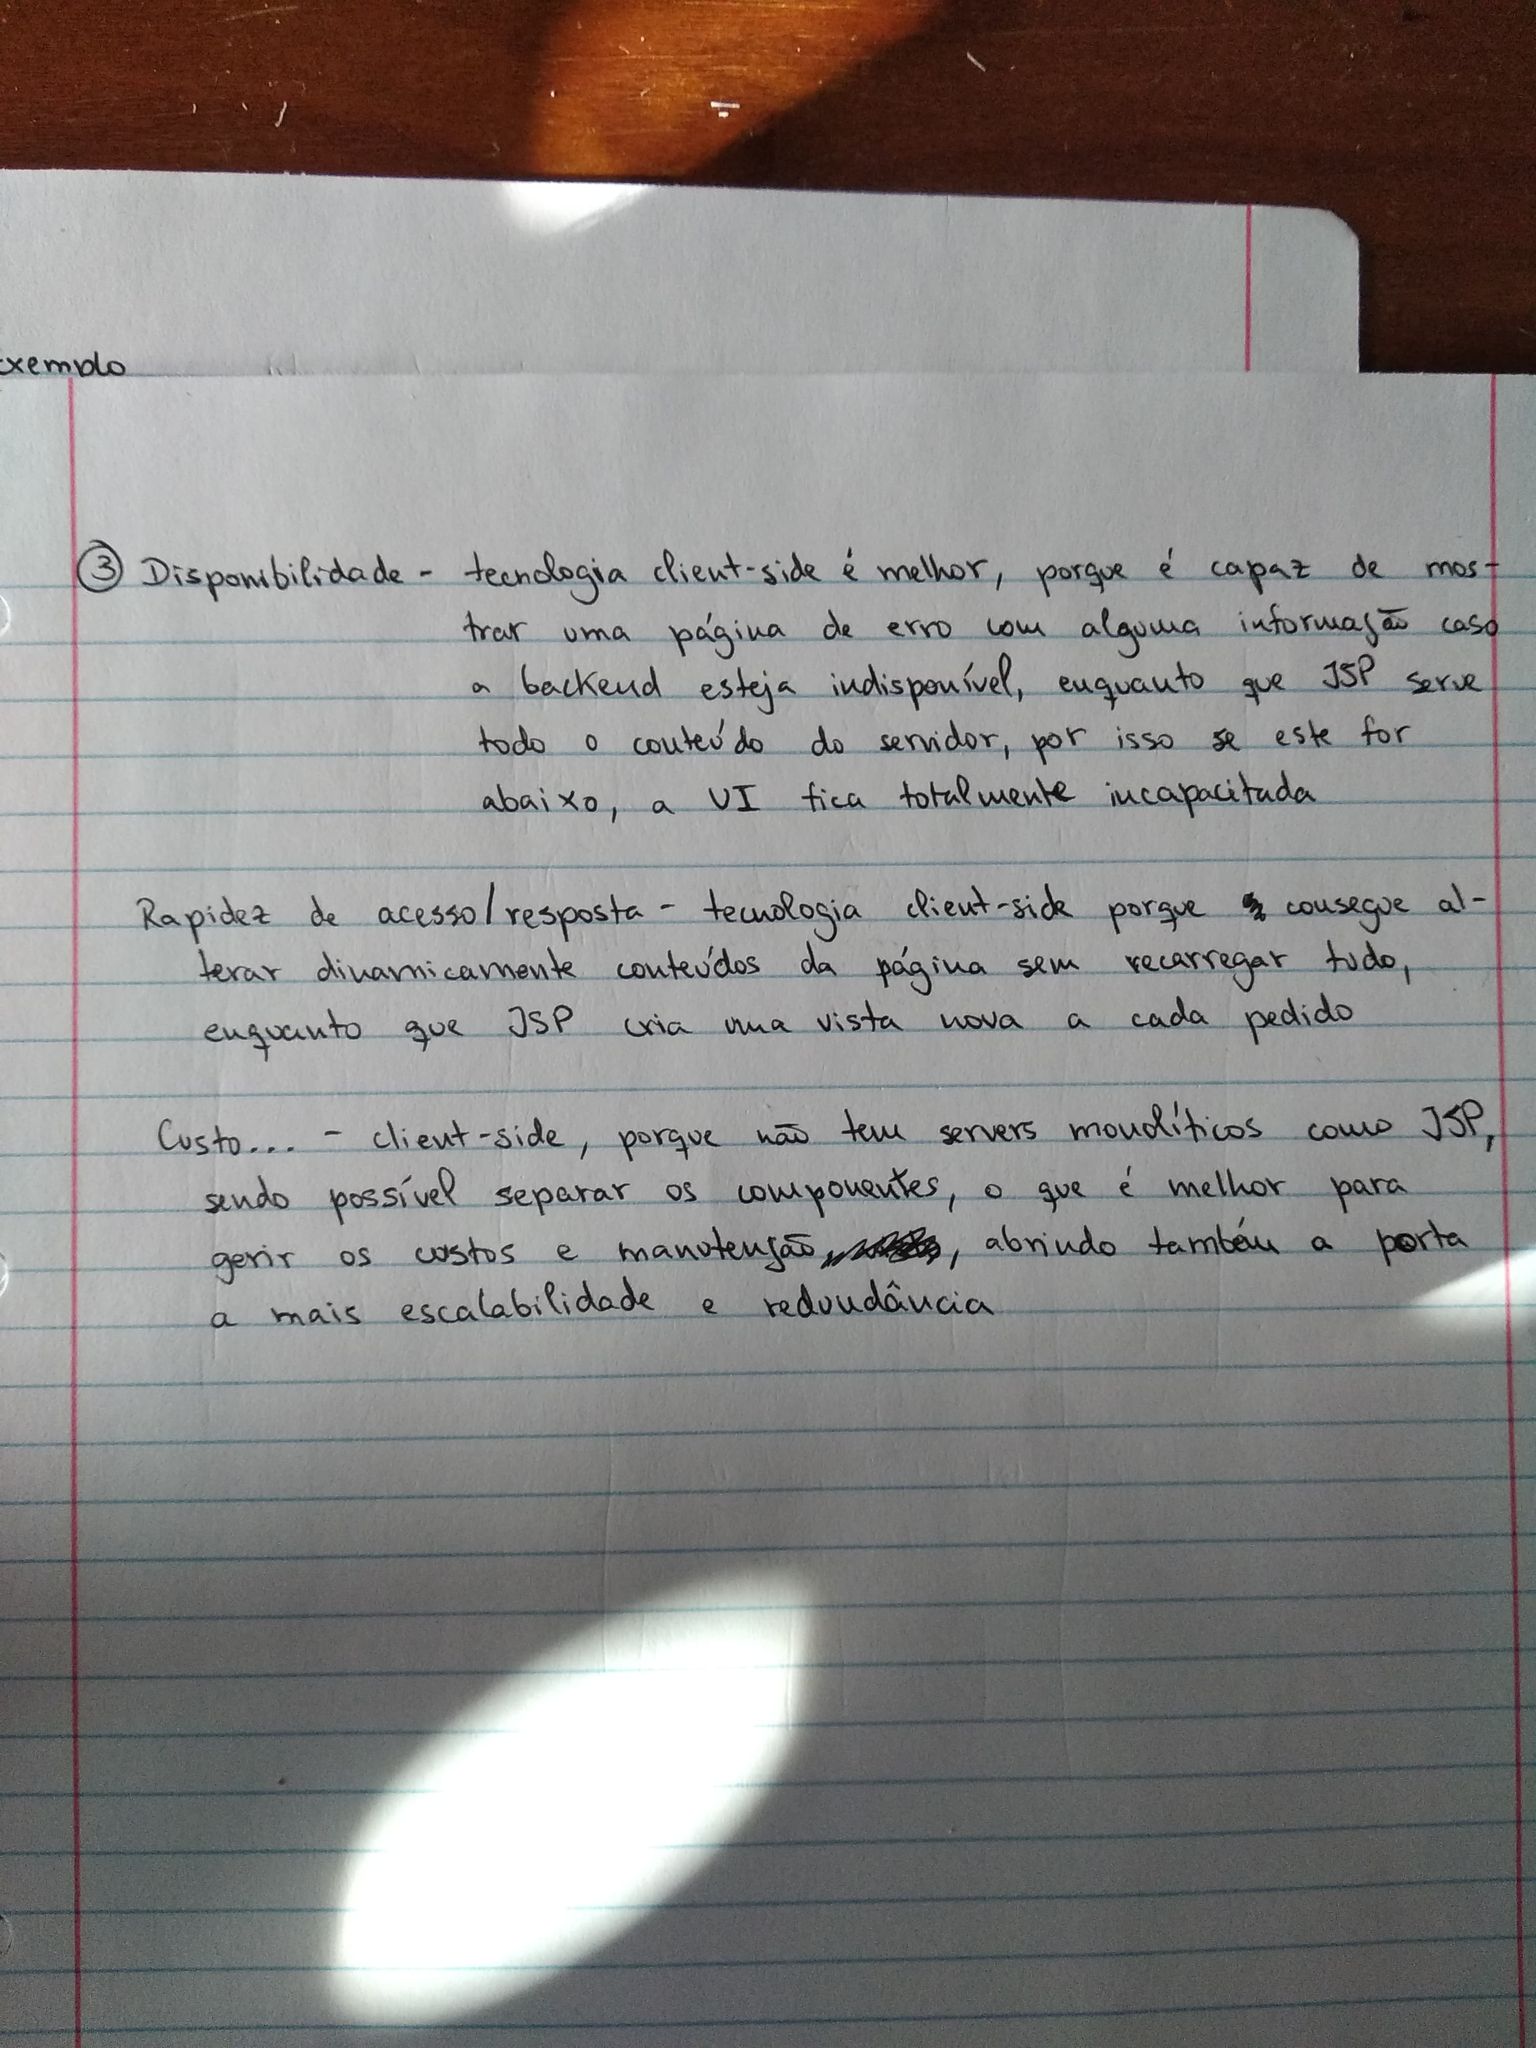 Exemplo
③ Disponibilidade - tecnologia client-side é melhor, porque é capaz de mos-
trar uma página de erro com alguma informação caso
a backend esteja indisponível, enquanto que JSP serve
todo o conteúdo do servidor, por isso se este for
abaixo, a UI fica totalmente incapacitada
Rapidez de acesso/resposta - tecnologia client-side porque consegue al-
terar dinamicamente conteúdos da página sem recarregar tudo,
enquanto que JSP cria uma vista nova a cada pedido
Custo... - client-side, porque não tem servers monolíticos como JSP,
sendo possível separar os componentes, o que é melhor para
gerir os custos e manutenção, abrindo também a porta
a mais escalabilidade e redundância